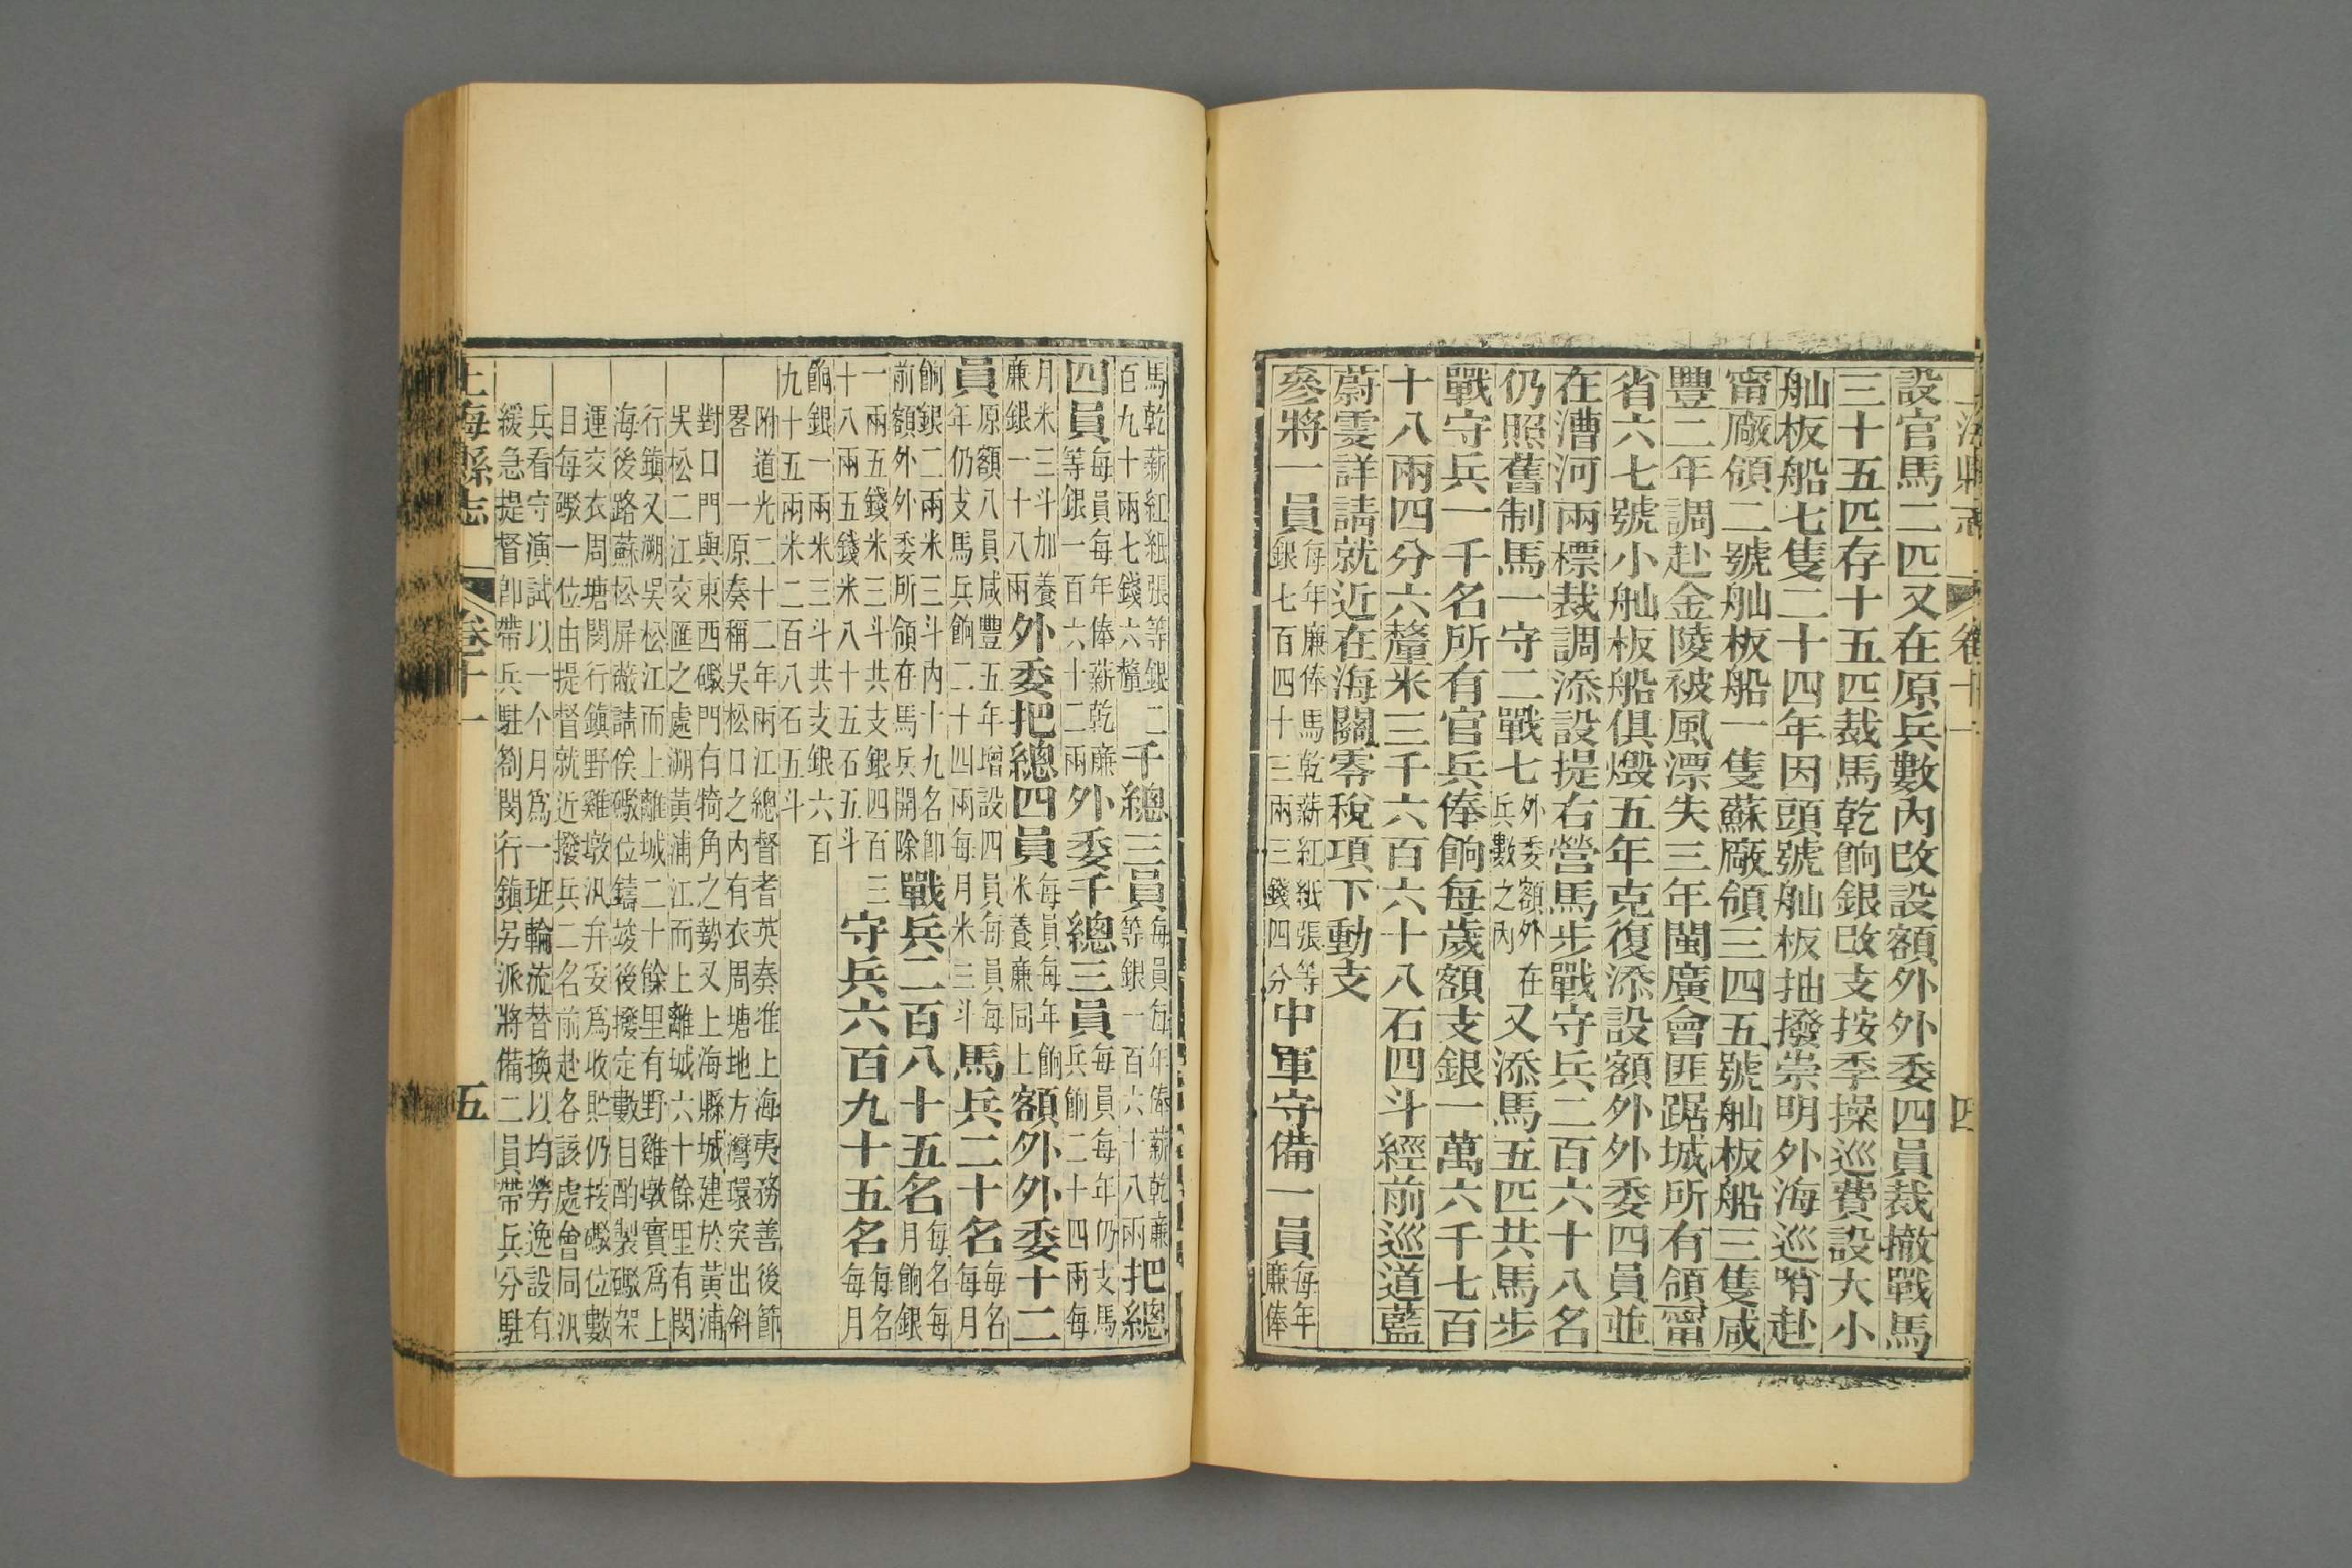 上海縣志 卷十一 四
設官馬二匹又在原兵數內改設額外外委四員裁撤戰馬
三十五匹存十五匹裁馬乾餉銀改支按季操巡費設大小
舢板船七隻二十四年因頭號舢板抽撥崇明外海巡哨赴
甯廠領二號舢板船一隻蘇廠領三四五號舢板船三隻咸
豐二年調赴金陵被風漂失三年閩廣會匪踞城所有領甯
省六七號小舢板船俱燬五年克復添設額外外委四員並
在漕河兩標裁調添設提右營馬步戰守兵二百六十八名
仍照舊制馬一守二戰七外委額外在
兵數之內又添馬五匹共馬步
戰守兵一千名所有官兵俸餉每歲額支銀一萬六千七百
十八兩四分六釐米三千六百六十八石四斗經前巡道藍
蔚雯詳請就近在海關零稅項下動支
參將一員每年廉俸馬乾薪紅紙張等
銀七百四十三兩三錢四分中軍守備一員每年
廉俸
馬乾薪紅紙張等銀二
百九十兩七錢六釐千總三員每員每年俸薪乾廉
等銀一百六十八兩把總
四員每員每年俸薪乾廉
等銀一百六十二兩外委千總三員每員每年仍支馬
兵餉二十四兩每
月米三斗加養
廉銀一十八兩外委把總四員每員每年餉
米養廉同上額外外委十二
員原額八員咸豐五年增設四員每員每
年仍支馬兵餉二十四兩每月米三斗馬兵二十名每名
每月
餉銀二兩米三斗內十九名卽
前額外外委所領在馬兵開除戰兵二百八十五名每名每
月餉銀
一兩五錢米三斗共支銀四百三
十八兩五錢米八十五石五斗守兵六百九十五名每名
每月
餉銀一兩米三斗共支銀六百
九十五兩米二百八石五斗
附道光二十二年兩江總督耆英奏准上海夷務善後節
畧 一原奏稱吳松口之內有衣周塘地方灣環突出斜
對口門與東西礮門有犄角之勢又上海縣城建於黃浦
吳松二江交匯之處溯黃浦江而上離城六十餘里有閔
行鎮又溯吳松江而上離城二十餘里有野雞墩實爲上
海後路蘇松屏蔽請俟礮位鑄竣後撥定數目酌製礮架
運交衣周塘閔行鎮野雞墩汛弁妥爲收貯仍按礮位數
目每礮一位由提督就近撥兵二名前赴各該處會同汛
兵看守演試以一个月爲一班輪流替換以均勞逸設有
緩急提督卽帶兵駐劄閔行鎮另派將備二員帶兵分駐
上海縣志 卷十一 五